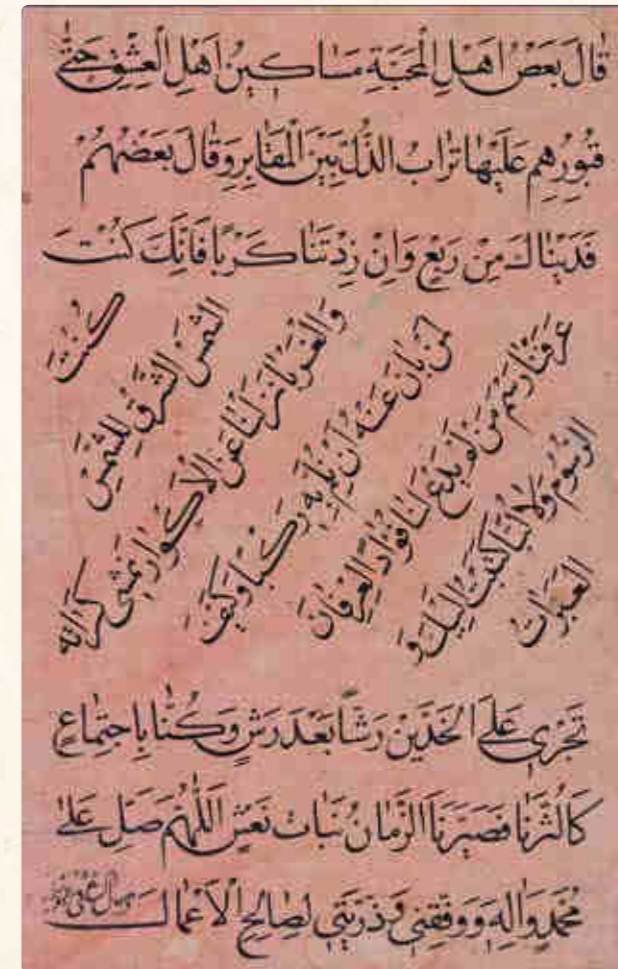 قَالَ بَعْضُ اَهْلِ الْمَحَبَّةِ مَسَاكِينُ اَهْلِ الْعِشْقِ حَتّٰى
قُبُورِهِم عَلَيْهَا تُرَابُ الذُّلِّ بَيْنَ الْمَقَابِرِ وَقَالَ بَعْضُهُمْ
فَدَيْنَاكَ مِنْ رَبْعٍ وَاِنْ زِدْتَنَا كَرْبًا فَاِنَّكَ كُنْتَ
كُنْتَ
الشَّمْسَ الشَّرْقَ لِلشَّمْسِ
وَالْغَرْبَا نَزَلْنَا عَنِ الْاَكْوَارِ نَمْشِى كَرَامَةً
لِمَنْ بَانَ عَنْهُ اَنْ نُلِمَّ بِهِ رَكْبًا وَكَيْفَ
عَرَفْنَا رَسْمَ مَنْ لَمْ يَدَعْ لَنَا فُؤَادًا لِعِرْفَانِ
الرُّسُومِ وَلَا لُبًّا كَتَبْتُ اِلَيْكَ وَ
الْعَبَرَاتُ
تَجْرِى عَلَى الْخَدَّيْنِ رَشًّا بَعْدَ رَشٍّ وَكُنَّا بِاجْتِمَاعٍ
كَالثُّرَيَّا فَصَيَّرَنَا الزَّمَانُ بَنَاتِ نَعْشٍ اللّٰهُمَّ صَلِّ عَلٰى
مُحَمَّدٍ وَاٰلِهِ وَوَفِّقْنِى وَذُرِّيَّتِى لِصَالِحِ الْاَعْمَالِ